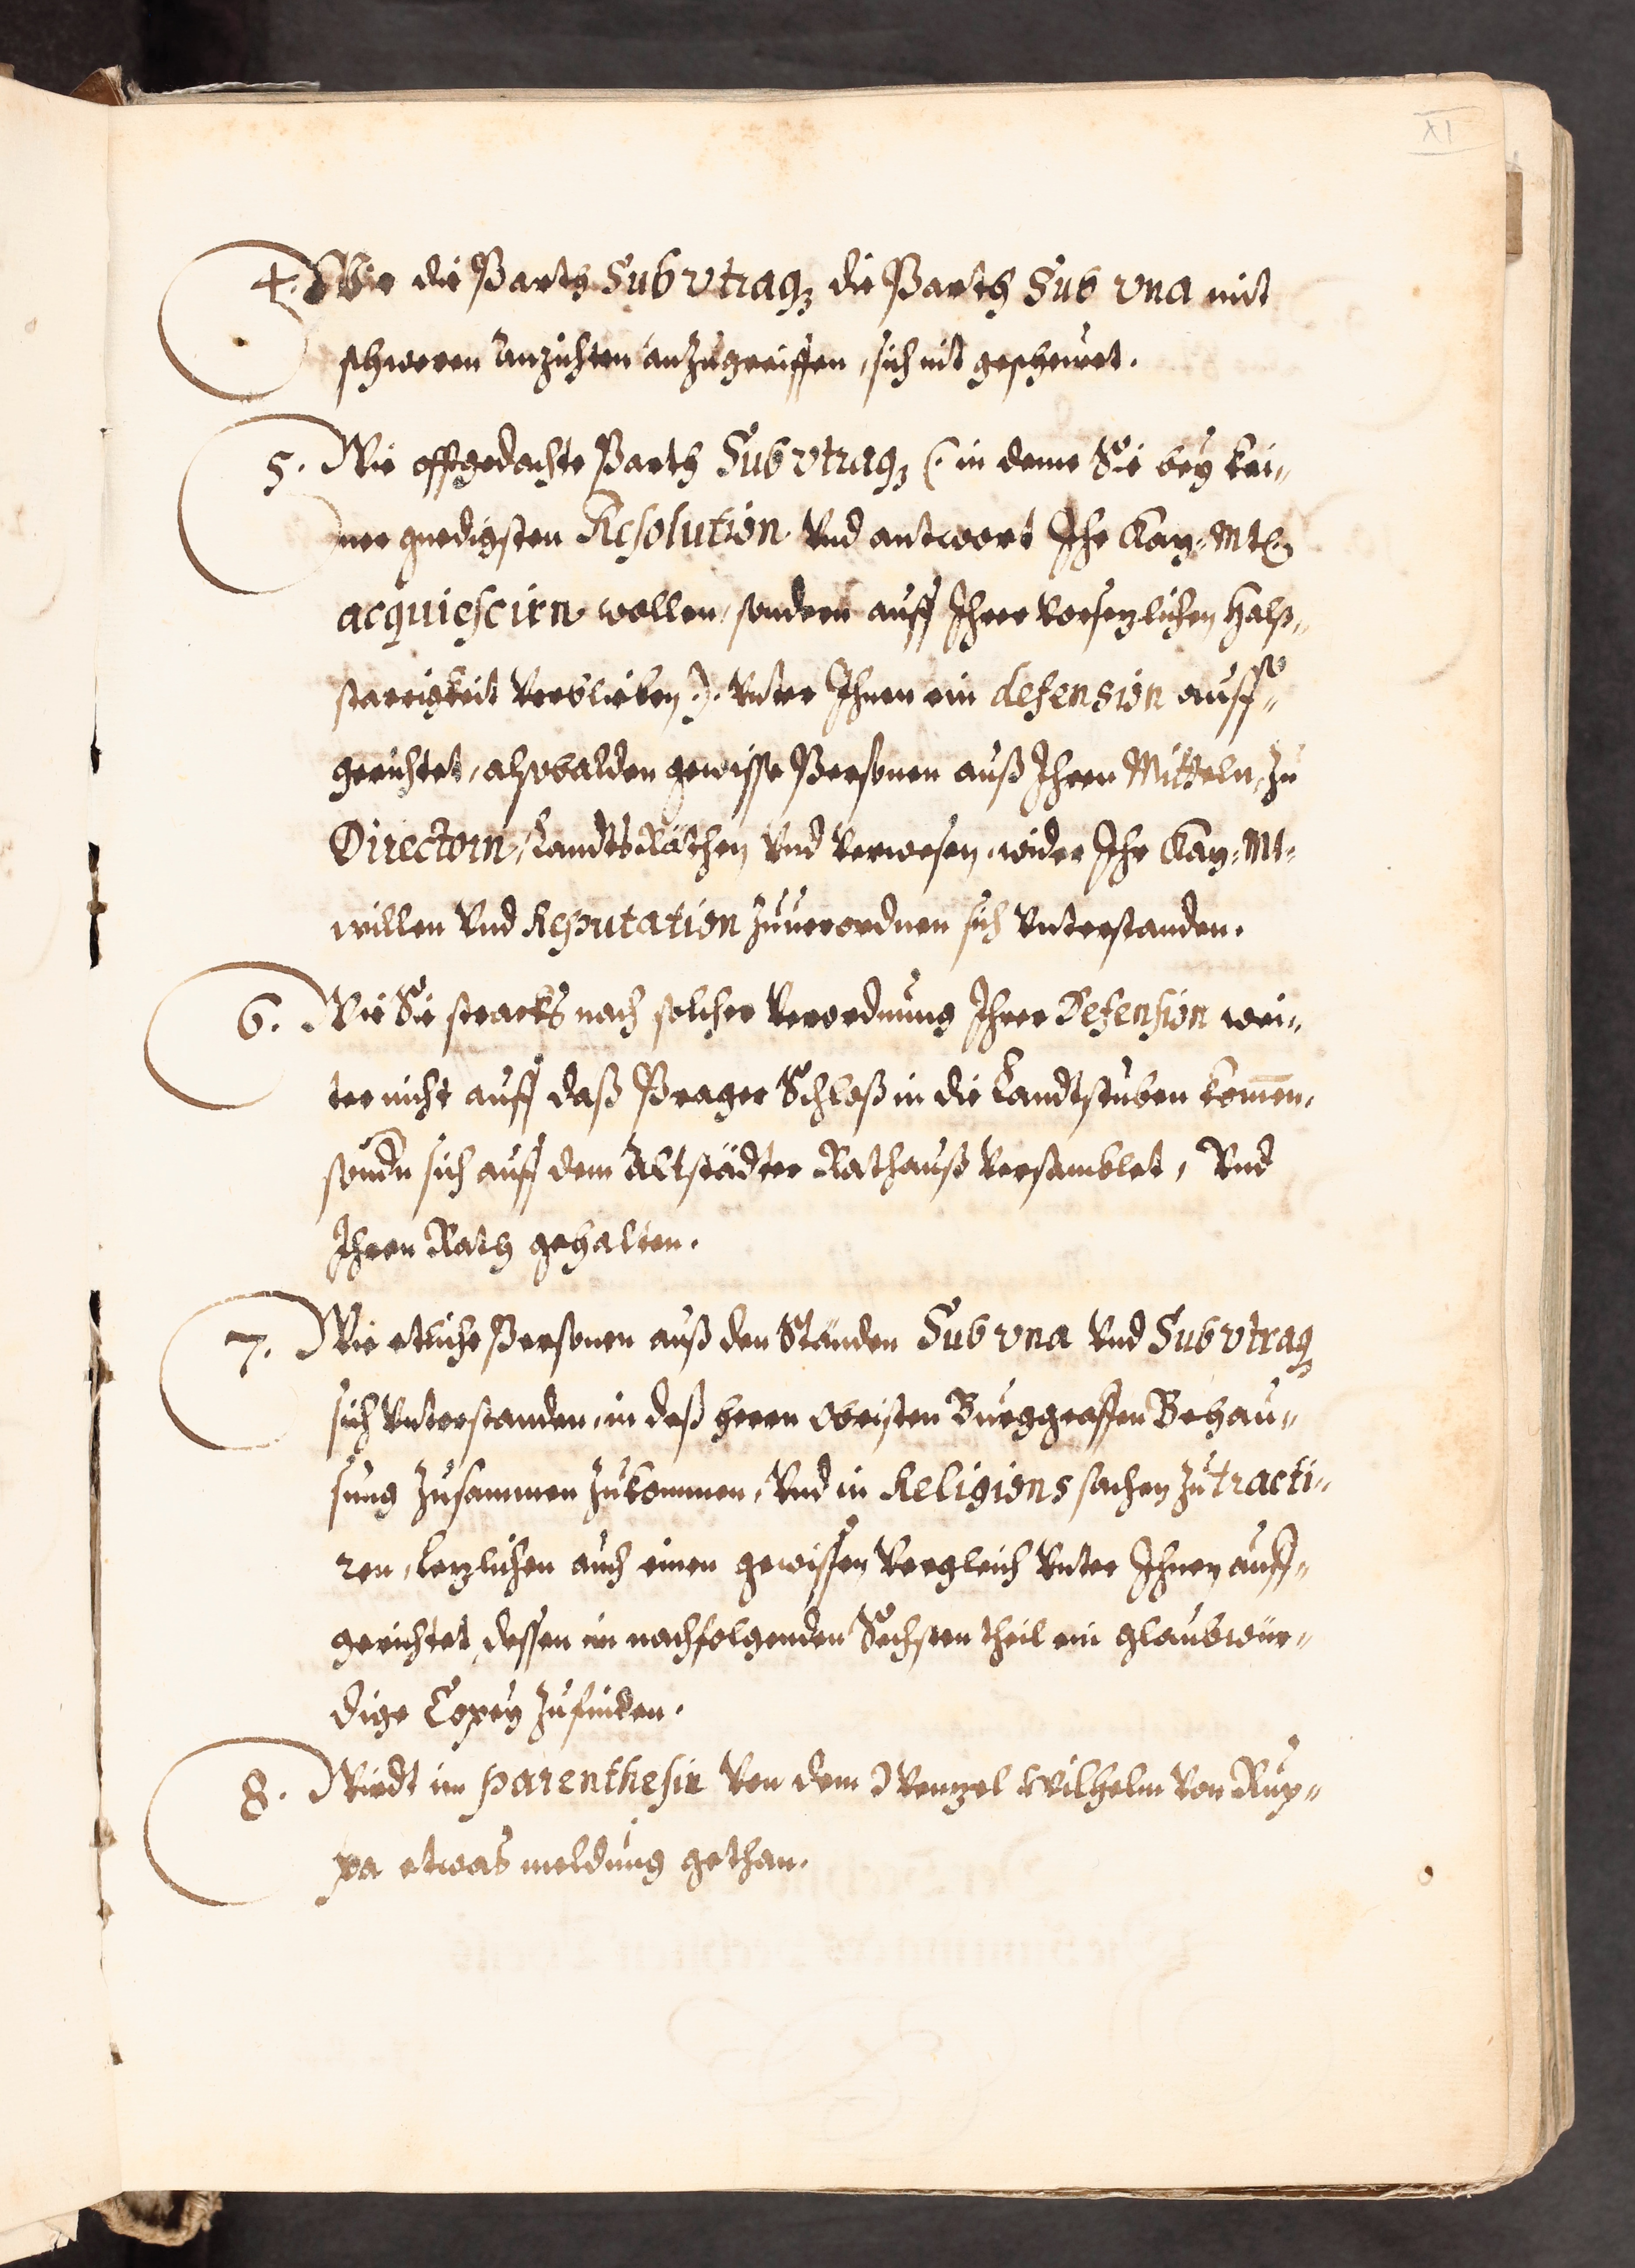 XI
4. Wie die Parth Sub vtraq₃ die Parth Sub vna mit
schweren Anzichten anzugreiffen, sich nit gescheuet.
5. Wie offtgedachte Parth Sub vtraq₃ (: in deme Sie bey kei„
ner gnedigsten Resolution Vnd antwort Ihr Kay: Mt:
acquiescirn wollen, sondern auff Ihrer Vorsetzlichen Halß„
starrigkeit Verblieben :). Vnter Ihnen ein defension auff„
gerichtet, alsobalden gewisse Personen auß Ihren Mitteln, zu
Directorn, LandtsRäthen Vnd Verwesern, wider Ihr Kay: Mt:
willen Vnd Reputation zuuerordnen sich Vnterstanden.
6. Wie Sie stracks nach solcher Verordnung Ihrer Defension wei„
ter nicht auff daß Prager Schloß in die Landtstuben kom̄en,
sondn̄ sich auff dem Altstädter Rathauß Versamblet, Vnd
Ihren Rath gehalten.
7. Wie etliche Personen auß den Ständen Sub vna Vnd Sub vtraq₃
sich Vnterstanden, in deß Herrn Obristen Burggraffen Behau„
sung zusammen zukommen, Vnd in Religions sachen zu tracti„
ren, letzlichen auch einen gewissen Vergleich Vnter Ihnen auff„
gerichtet, dessen im nachfolgenden Sechsten theil ein glaubwür„
dige Copey zufinden.
8. Wirdt in parenthesin Von dem Wenzel Wilhelm Von Rup„
pa etwas meldung gethan.